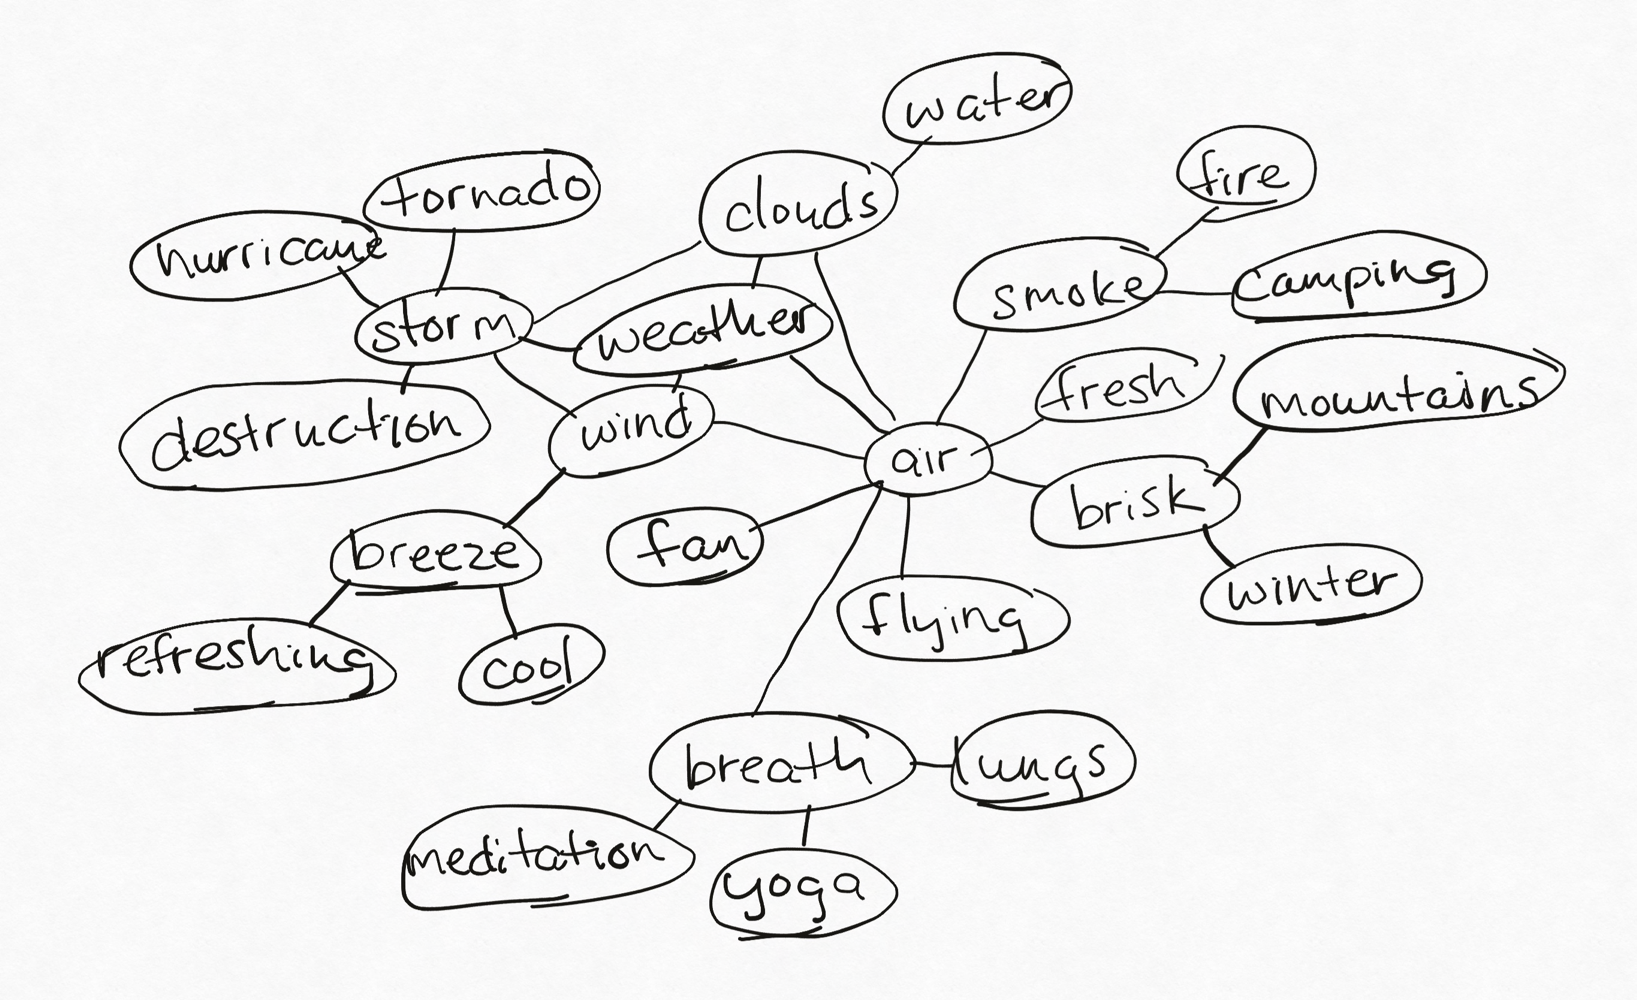 water
fire
tornado
clouds
hurricane
smoke
camping
storm
weather
fresh
mountains
destruction
wind
air
brisk
breeze
fan
winter
flying
refreshing
cool
breath
lungs
meditation
yoga